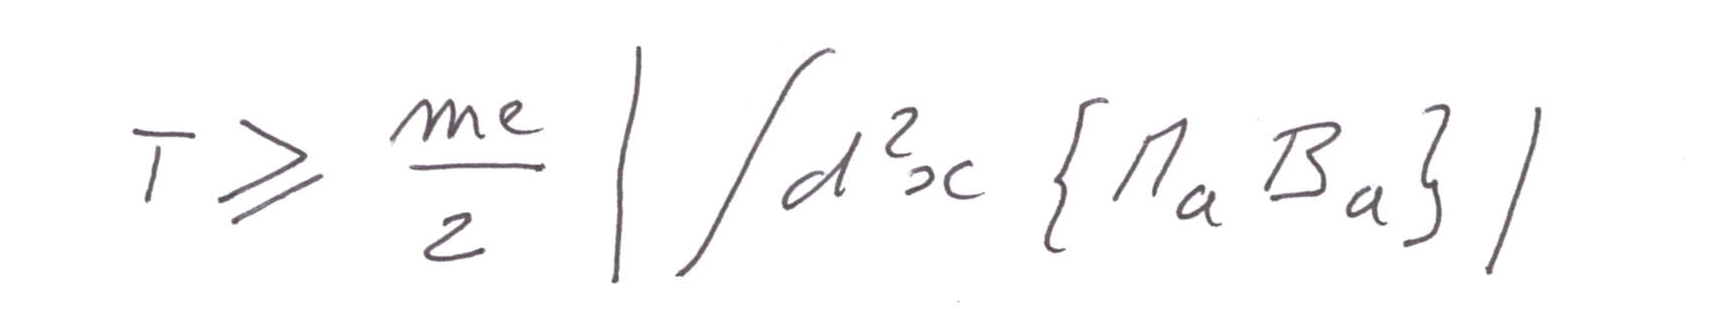 T \geqslant \frac{me}{2} \left| \int d^2x \{ \Pi_a B_a \} \right|